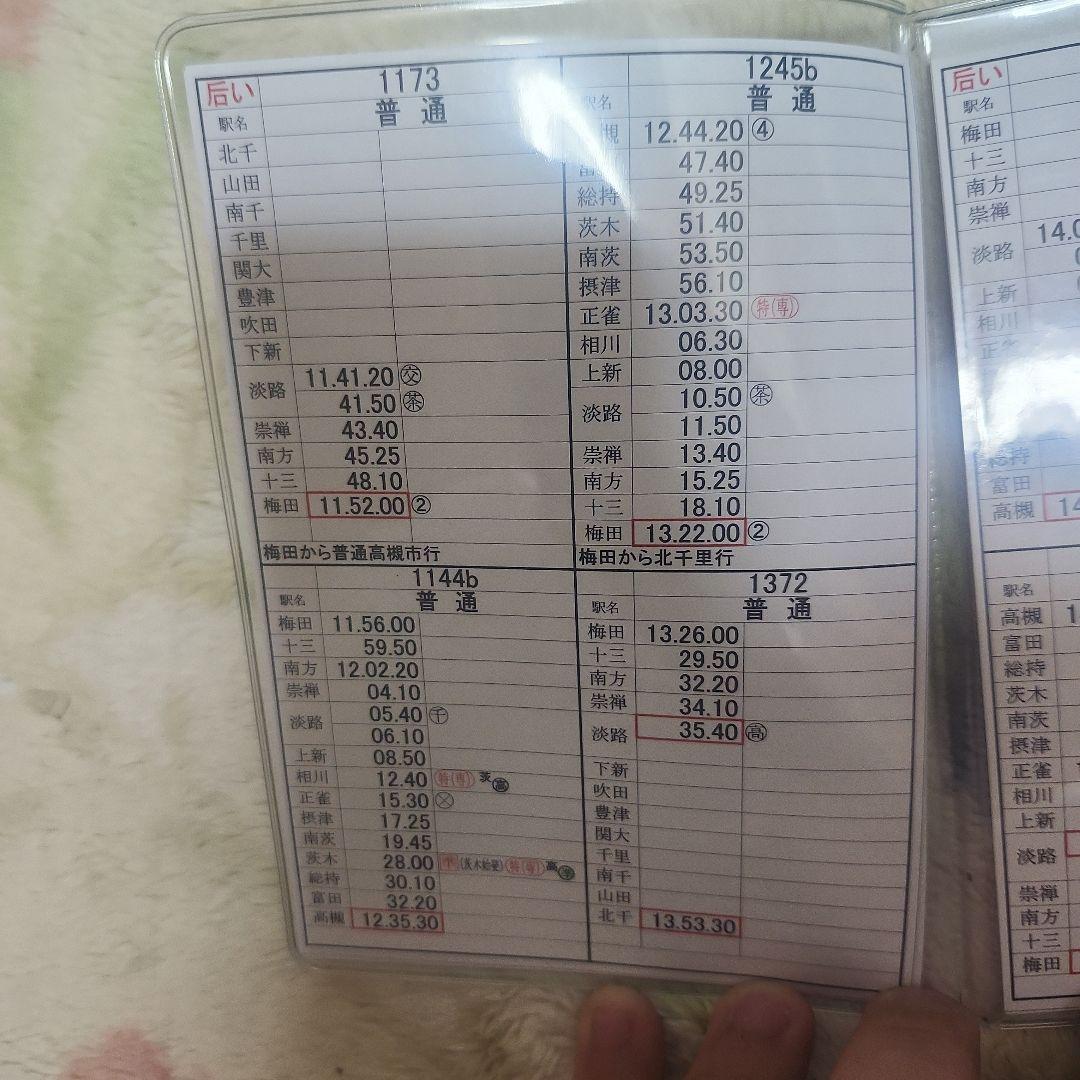 后い 1173
普通
駅名
北千
山田
南千
千里
関大
豊津
吹田
下新
淡路 11.41.20 交
41.50 茶
崇禅 43.40
南方 45.25
十三 48.10
梅田 11.52.00 ②
梅田から普通高槻市行
1245b
駅名 普通
槻 12.44.20 ④
富 47.40
総持 49.25
茨木 51.40
南茨 53.50
摂津 56.10
正雀 13.03.30 特(専)
相川 06.30
上新 08.00
淡路 10.50 茶
11.50
崇禅 13.40
南方 15.25
十三 18.10
梅田 13.22.00 ②
梅田から北千里行
1144b
駅名 普通
梅田 11.56.00
十三 59.50
南方 12.02.20
崇禅 04.10
淡路 05.40 千
06.10
上新 08.50
相川 12.40 特(専) 茨高
正雀 15.30
摂津 17.25
南茨 19.45
茨木 28.00 (茨木始発) 特(専) 高
総持 30.10
富田 32.20
高槻 12.35.30
1372
駅名 普通
梅田 13.26.00
十三 29.50
南方 32.20
崇禅 34.10
淡路 35.40 高
下新
吹田
豊津
関大
千里
南千
山田
北千 13.53.30
后い
駅名
梅田
十三
南方
崇禅
淡路 14.0
上新
相川
正雀
総持
富田
高槻 14
駅名
高槻 1
富田
総持
茨木
南茨
摂津
正雀
相川
上新
淡路
崇禅
南方
十三
梅田